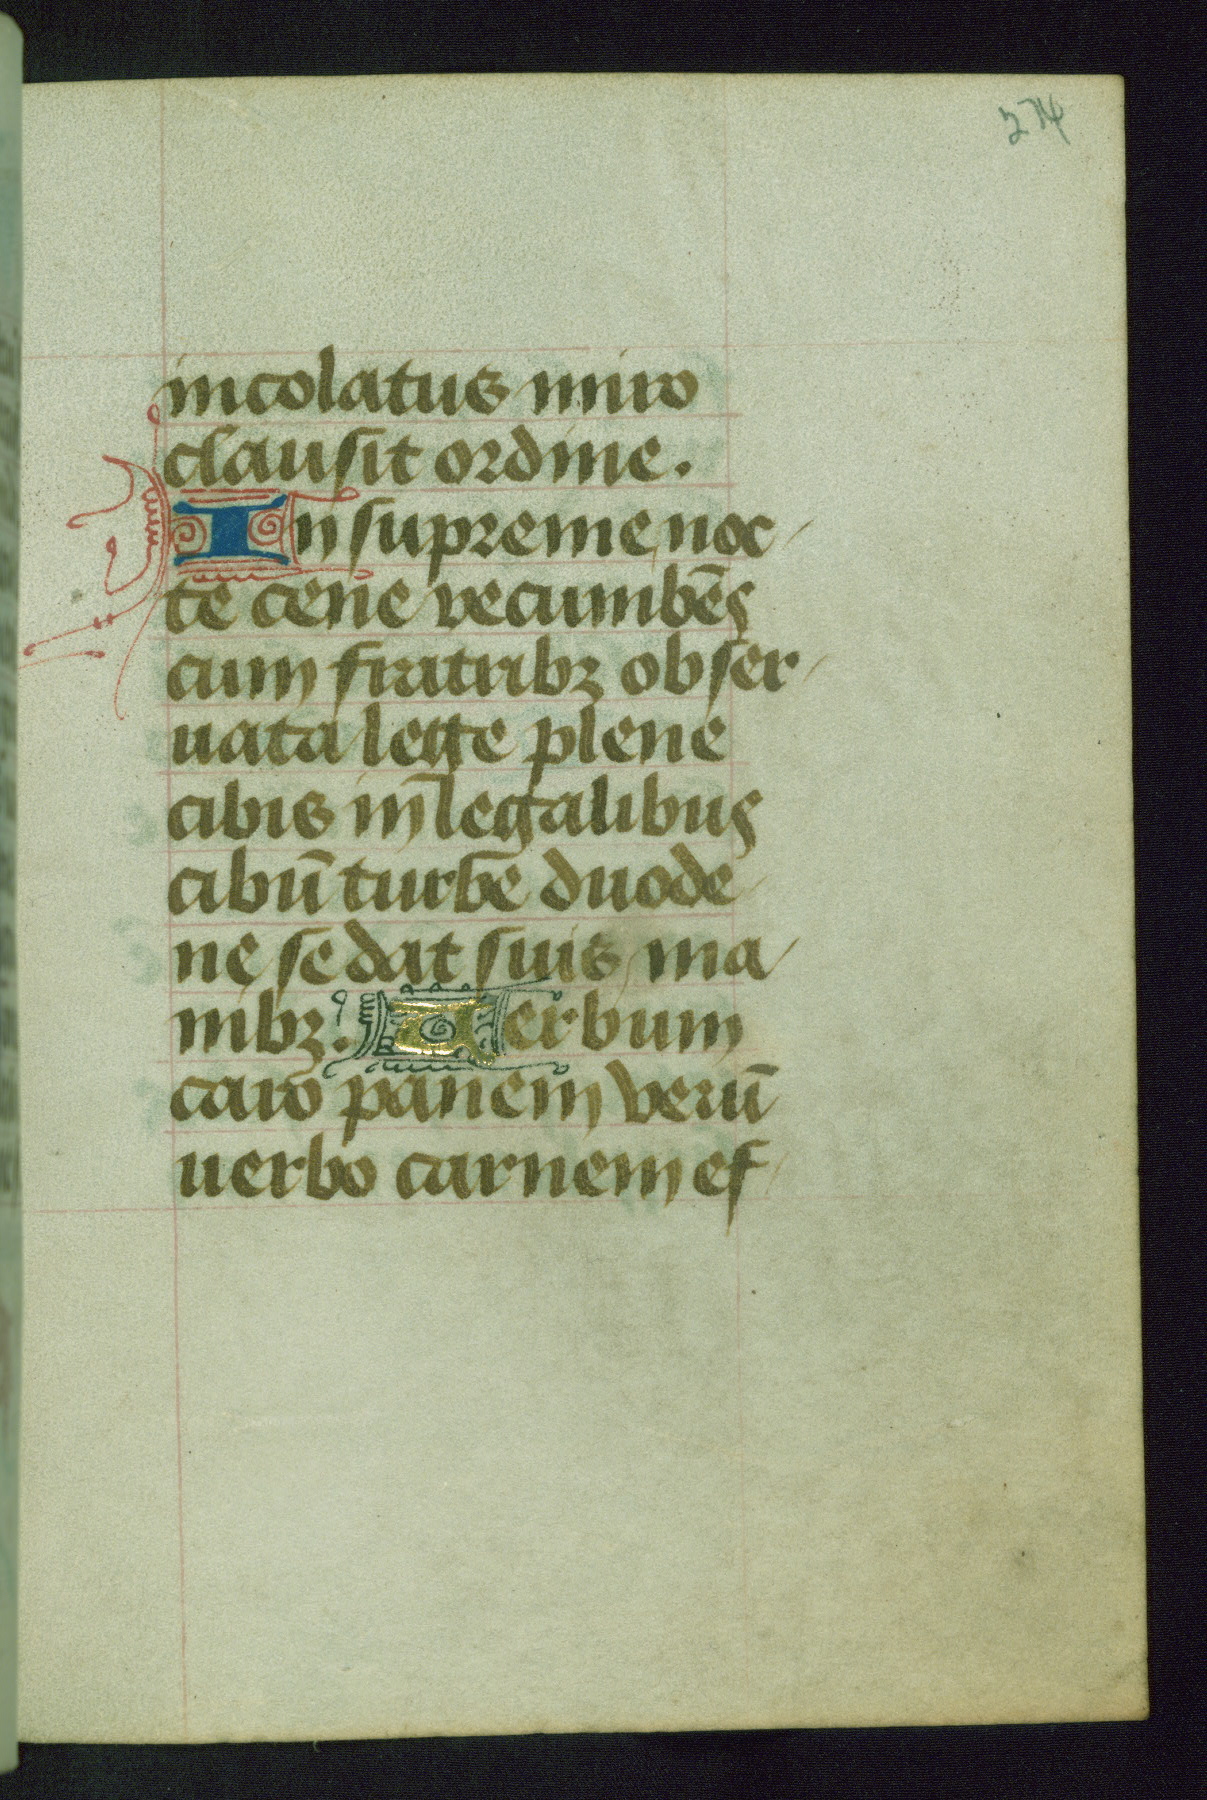 274
incolatus miro
clausit ordine.
In supreme noc
te cene recumbēs
cum fratribꝫ obser
uata lege plene
cibis in̄ legalibus
cibū turbe duode
ne se dat suis ma
nibꝫ. Verbum
caro panem verū
uerbo carnem ef